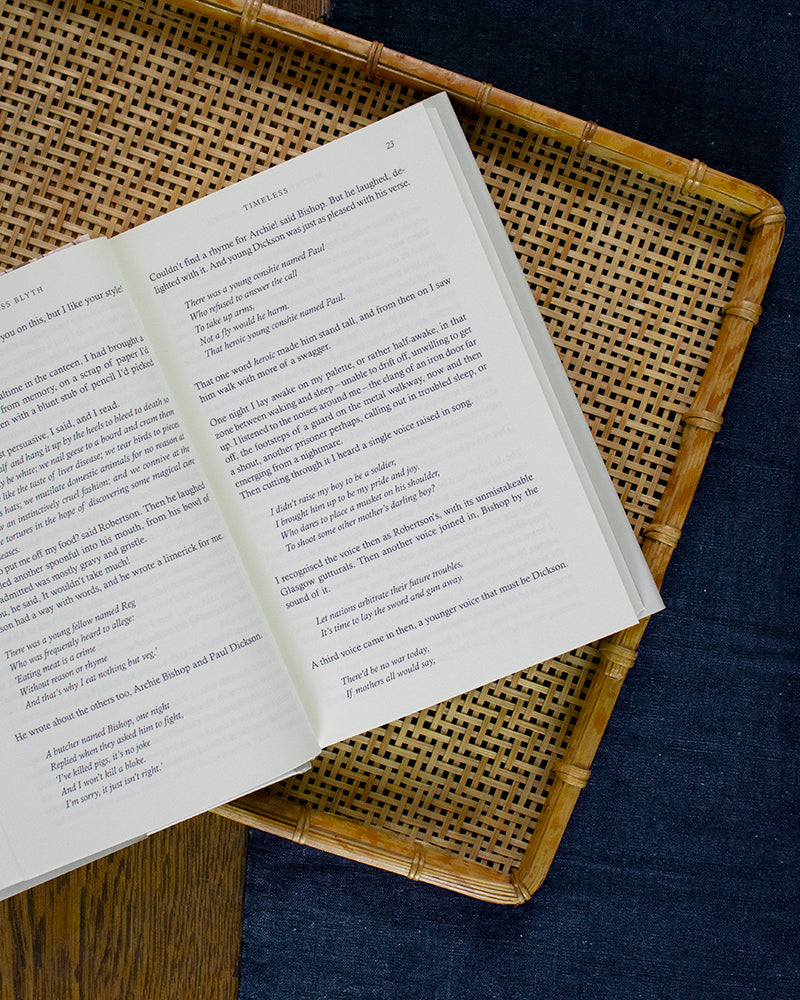 SS BLYTH
you on this, but I like your style!
altime in the canteen, I had brought a
from memory, on a scrap of paper I'd
en with a blunt stub of pencil I'd picked
st persuasive, I said, and I read.
lf and hang it up by the heels to bleed to death so
y be white; we nail geese to a board and cram them
like the taste of liver disease; we tear birds to pieces
s hats; we mutilate domestic animals for no reason at
w an instinctively cruel fashion; and we connive at the
e tortures in the hope of discovering some magical cure
eases.
o put me off my food? said Robertson. Then he laughed
led another spoonful into his mouth, from his bowl of
admitted was mostly gravy and gristle.
u, he said. It wouldn't take much!
son had a way with words, and he wrote a limerick for me.
There was a young fellow named Reg
Who was frequently heard to allege:
'Eating meat is a crime
Without reason or rhyme
And that's why I eat nothing but veg.'
He wrote about the others too, Archie Bishop and Paul Dickson.
A butcher named Bishop, one night
Replied when they asked him to fight,
'I've killed pigs, it's no joke
And I won't kill a bloke.
I'm sorry, it just isn't right.'
TIMELESS 23
Couldn't find a rhyme for Archie! said Bishop. But he laughed, de-
lighted with it. And young Dickson was just as pleased with his verse.
There was a young conshie named Paul
Who refused to answer the call
To take up arms,
Not a fly would he harm.
That heroic young conshie named Paul.
That one word heroic made him stand tall, and from then on I saw
him walk with more of a swagger.
One night I lay awake on my palette, or rather half-awake, in that
zone between waking and sleep – unable to drift off, unwilling to get
up. I listened to the noises around me – the clang of an iron door far
off, the footsteps of a guard on the metal walkway, now and then
a shout, another prisoner perhaps, calling out in troubled sleep, or
emerging from a nightmare.
Then cutting through it I heard a single voice raised in song.
I didn't raise my boy to be a soldier,
I brought him up to be my pride and joy.
Who dares to place a musket on his shoulder,
To shoot some other mother's darling boy?
I recognised the voice then as Robertson's, with its unmistakeable
Glasgow gutturals. Then another voice joined in, Bishop by the
sound of it.
Let nations arbitrate their future troubles,
It's time to lay the sword and gun away.
A third voice came in then, a younger voice that must be Dickson.
There'd be no war today,
If mothers all would say,